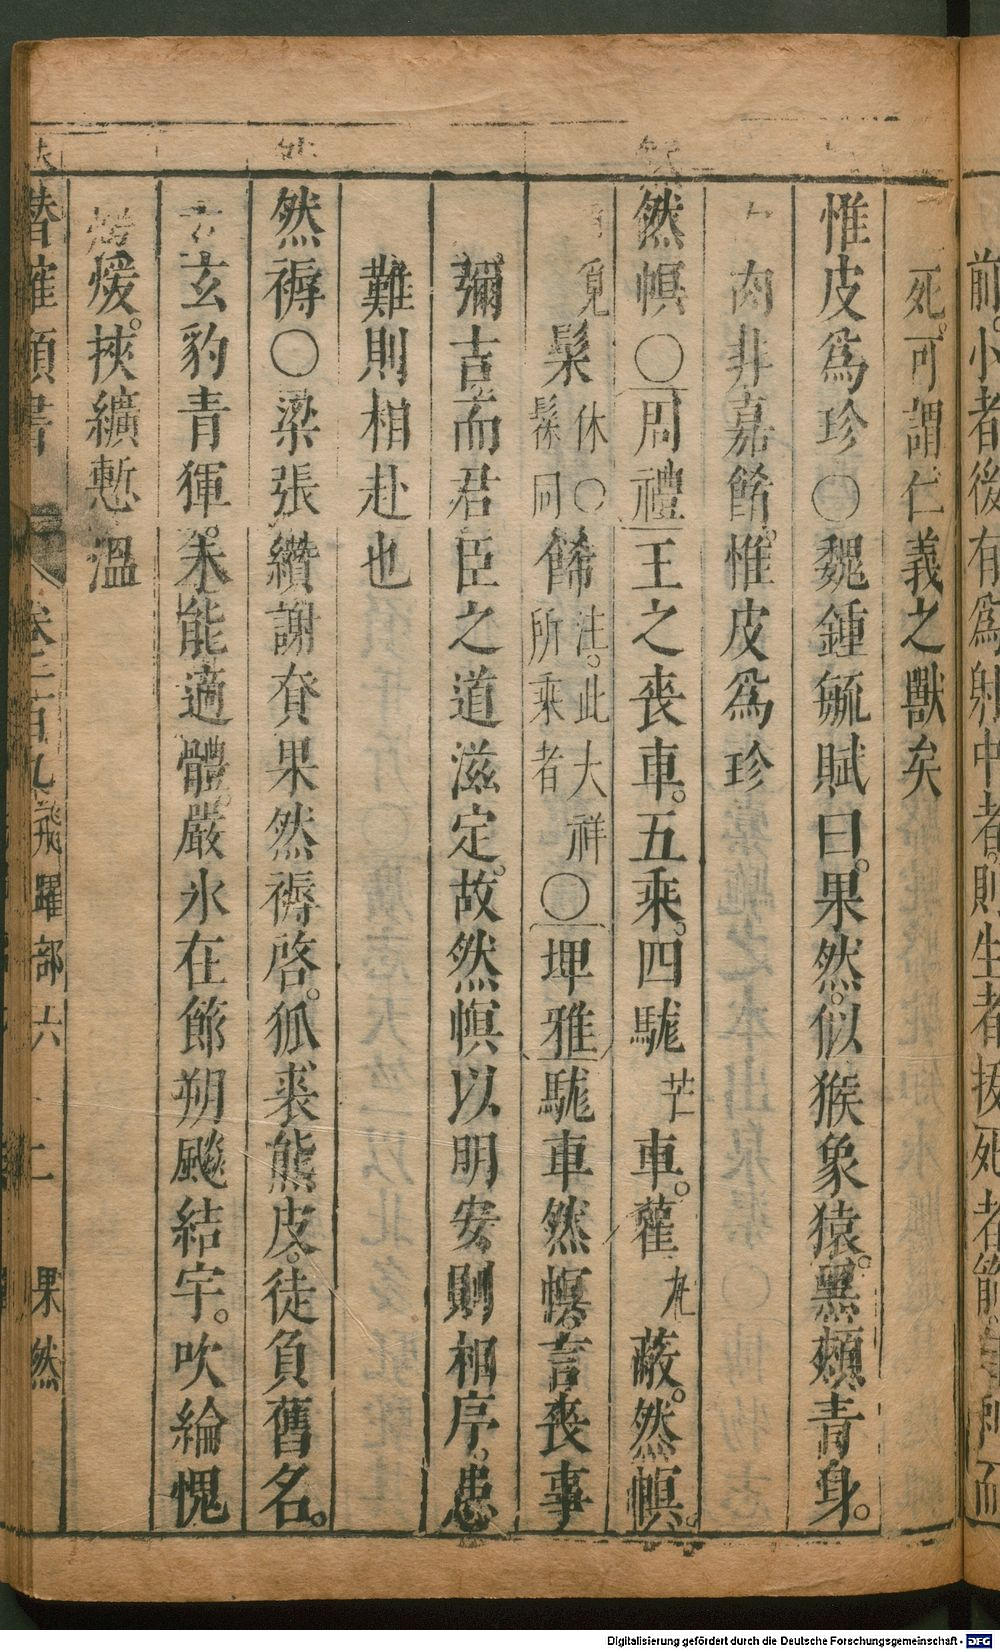 前小者後有爲射中者則生者拔死者箭
而
死。可謂仁義之獸矣
惟皮爲珍○魏鍾毓賦曰。果然。似猴象猿。黑頰青身。
肉非嘉餚。惟皮爲珍
然幎○周禮王之喪車。五乘。四駹芒車。雚丸蔽。然幎。
覓髹休○髹同飾注。此大祥所乘者○埤雅駹車然幎。言喪事
彌吉。而君臣之道滋定。故然幎以明安。則相序。患
難則相赴也
然褥○梁張纘謝賚果然褥啓。狐裘熊皮。徒負舊名。
玄豹青狐。未能適體。嚴氷在節朔飈結宇。吹綸愧
煖。挾纊慙溫
潛確類書
卷一百九 飛躍部六 十二 果然
Digitalisierung gefördert durch die Deutsche Forschungsgemeinschaft - DFG